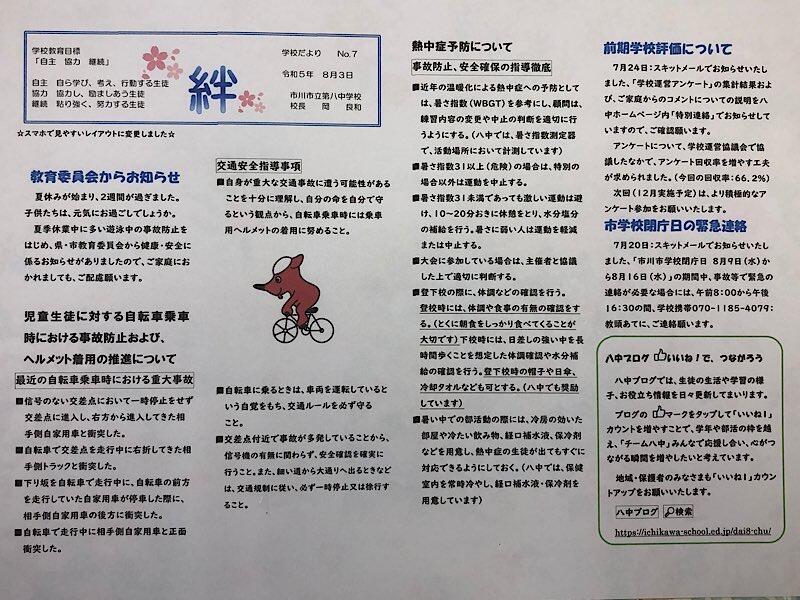 学校教育目標
「自主 協力 継続」
自主 自ら学び、考え、行動する生徒
協力 協力し、励ましあう生徒
継続 粘り強く、努力する生徒
絆
学校だより No.7
令和5年 8月3日
市川市立第八中学校
校長 岡 良和
☆スマホで見やすいレイアウトに変更しました☆
教育委員会からお知らせ
夏休みが始まり、2週間が過ぎました。
子供たちは、元気にお過ごしでしょうか。
夏季休業中に多い遊泳中の事故防止を
はじめ、県・市教育委員会から健康・安全に
係るお知らせがありましたので、ご家庭にお
かれましても、ご配慮願います。
児童生徒に対する自転車乗車
時における事故防止および、
ヘルメット着用の推進について
最近の自転車乗車時における重大事故
■信号のない交差点において一時停止をせず
交差点に進入し、右方から進入してきた相
手側自家用車と衝突した。
■自転車で交差点を走行中に右折してきた相
手側トラックと衝突した。
■下り坂を自転車で走行中に、自転車の前方
を走行していた自家用車が停車した際に、
相手側自家用車の後方に衝突した。
■自転車で走行中に相手側自家用車と正面
衝突した。
交通安全指導事項
■自身が重大な交通事故に遭う可能性がある
ことを十分に理解し、自分の命を自分で守
るという観点から、自転車乗車時には乗車
用ヘルメットの着用に努めること。
■自転車に乗るときは、車両を運転している
という自覚をもち、交通ルールを必ず守る
こと。
■交差点付近で事故が多発していることから、
信号機の有無に関わらず、安全確認を確実
に行うこと。また、細い道から大通りへ出るときなど
は、交通規制に従い、必ず一時停止又は徐行す
ること。
熱中症予防について
事故防止、安全確保の指導徹底
■近年の温暖化による熱中症への予防として
は、暑さ指数(WBGT)を参考にし、顧問は、
練習内容の変更や中止の判断を適切に行
うようにする。(八中では、暑さ指数測定器
で、活動場所において計測しています)
■暑さ指数31以上(危険)の場合は、特別の
場合以外は運動を中止する。
■暑さ指数31未満であっても激しい運動は避
け、10~20分おきに休憩をとり、水分塩分
の補給を行う。暑さに弱い人は運動を軽減
または中止する。
■大会に参加している場合は、主催者と協議
した上で適切に判断する。
■登下校の際に、体調などの確認を行う。
登校時には、体調や食事の有無の確認をす
る。(とくに朝食をしっかり食べてくることが
大切です)下校時には、日差しの強い中を長
時間歩くことを想定した体調確認や水分補
給の確認を行う。登下校時の帽子や日傘、
冷却タオルなども可とする。(八中でも奨励
しています)
■暑い中での部活動の際には、冷房の効いた
部屋や冷たい飲み物、経口補水液、保冷剤
などを用意し、熱中症の生徒が出てもすぐに
対応できるようにしておく。(八中では、保健
室内を常時冷やし、経口補水液・保冷剤を
用意しています)
前期学校評価について
7月24日:スキットメールでお知らせいたし
ました、「学校運営アンケート」の集計結果およ
び、ご家庭からのコメントについての説明を八
中ホームページ内「特別連絡」でお知らせして
いますので、ご確認願います。
アンケートについて、学校運営協議会で協
議したなかで、アンケート回収率を増やす工夫
が求められました。(今回の回収率:66.2%)
次回(12月実施予定)は、より積極的なア
ンケート参加をお願いいたします。
市学校閉庁日の緊急連絡
7月20日:スキットメールでお知らせいたし
ました、「市川市学校閉庁日 8月9日(水)か
ら8月16日(水)」の期間中、事故等で緊急の
連絡が必要な場合には、午前8:00から午後
16:30の間、学校携帯070-1185-4079:
教頭あてに、ご連絡願います。
八中ブログ いいね!で、つながろう
八中ブログでは、生徒の生活や学習の様
子、お役立ち情報を日々更新してまいります。
ブログの マークをタップして「いいね!」
カウントを増やすことで、学年や部活の枠を越
え、「チーム八中」みんなで応援し合い、心がつ
ながる瞬間を増やしたいと考えています。
地域・保護者のみなさまも「いいね!」カウン
トアップをお願いいたします。
八中ブログ 検索
https://ichikawa-school.ed.jp/dai8-chu/